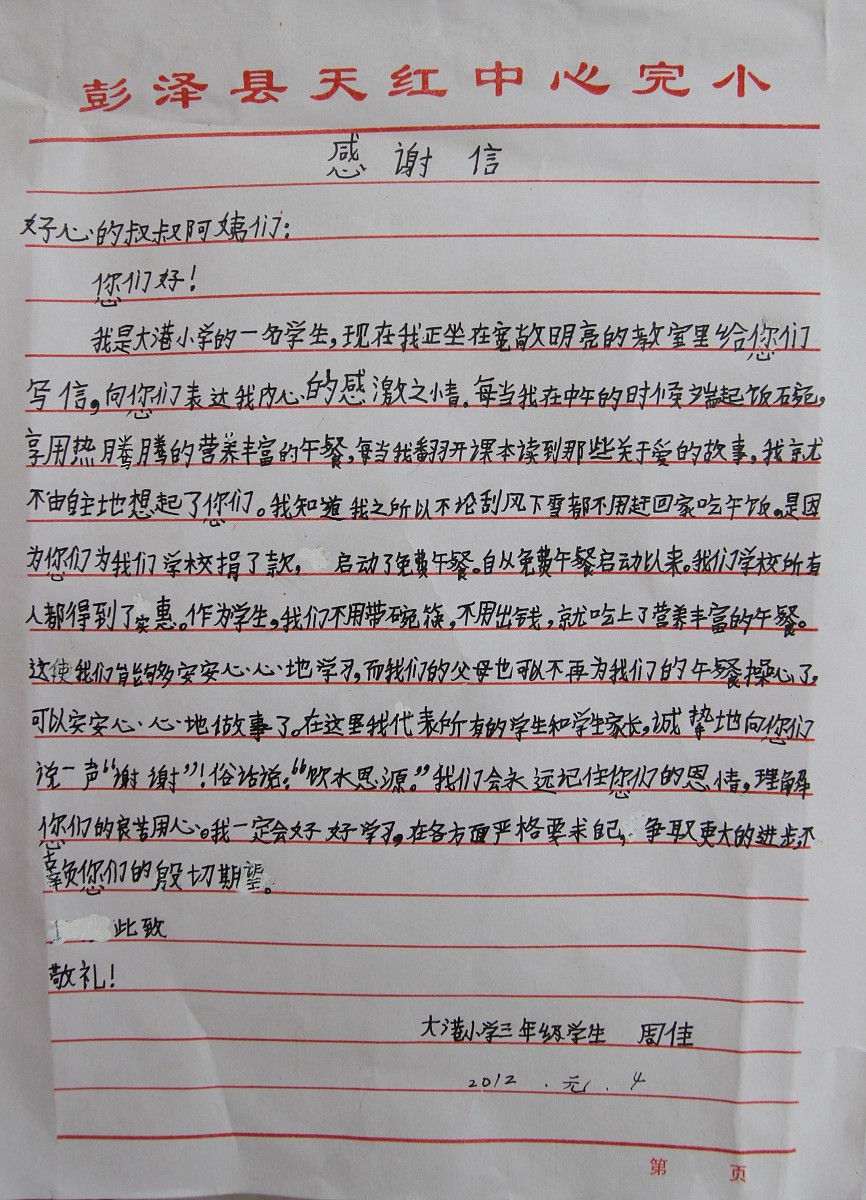 彭泽县天红中心完小
感谢信
好心的叔叔阿姨们:
您们好!
我是大港小学的一名学生,现在我正坐在宽敞明亮的教室里给您们
写信,向您们表达我内心的感激之情。每当我在中午的时候端起饭碗,
享用热腾腾的营养丰富的午餐,每当我翻开课本读到那些关于爱的故事,我就
不由自主地想起了您们。我知道我之所以不论刮风下雪都不用赶回家吃午饭。是因
为您们为我们学校捐了款, 启动了免费午餐。自从免费午餐启动以来。我们学校所有
人都得到了实惠。作为学生,我们不用带碗筷,不用出钱,就吃上了营养丰富的午餐。
这使我们能够多安安心心地学习,而我们的父母也可以不再为我们的午餐操心了,
可以安安心心地做故事了。在这里我代表所有的学生和学生家长,诚挚地向您们
说一声“谢谢”!俗话说:“饮水思源。”我们会永远记住您们的恩情,理解
您们的良苦用心。我一定会好好学习,在各方面严格要求自己,争取更大的进步,不
辜负您们的殷切期望。
此致
敬礼!
大港小学三年级学生 周佳
2012.元.4
第 页